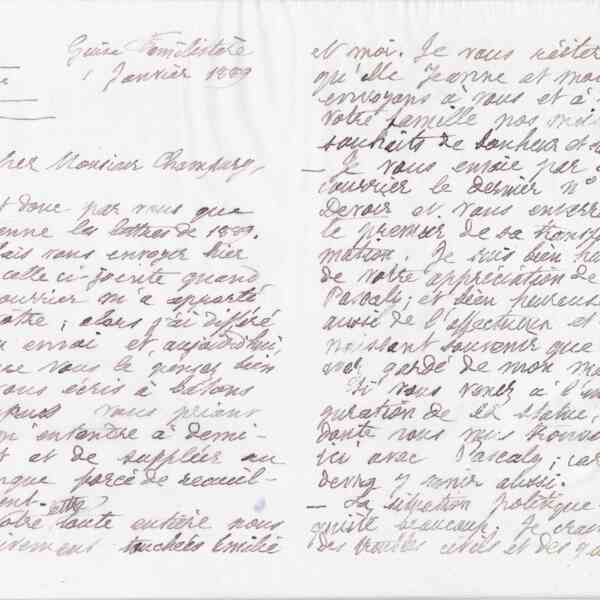 Guise Familistère
1 Janvier 1889
cher Monsieur Champury,
t donc par vous que
enne les lettres de 1889.
ais vous envoyer hier
celle ci-jointe quand
ourrier m'a apporté
otre ; alors j'ai différé
envoi et, aujourd'hui,
ue vous le pensez bien
vous écris à bâtons
vous priant
m'entendre à demi-
t et de suppléer au
que forcé de recueil-
ent.
otre toute entière nous
ivement touchées Emilie
et moi. Je vous réitère
qu'elle Jeanne et moi
envoyons à vous et à
votre famille nos meil
souhaits de bonheur et
— Je vous envoie par
courrier le dernier n°
Devoir et vous enverr
le premier de sa transfor
mation. Je suis bien heu
de votre appréciation de
Pascaly ; et bien heureuse
aussi de l'affectueux et
naissant souvenir que
garde de mon ma
Si vous venez à l'inau
guration de sa statue,
doute vous vous
ici avec Pascaly ; car
devra y venir aussi.
— La situation politique
beaucoup. Je crai
des troubles civils et des